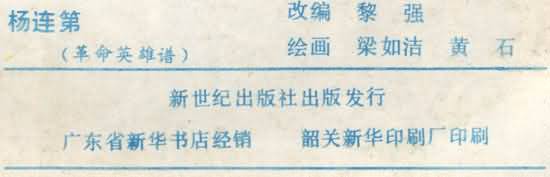 杨连第
(革命英雄谱)
改编 黎 强
绘画 梁如洁 黄 石
新世纪出版社出版发行
广东省新华书店经销 韶关新华印刷厂印刷